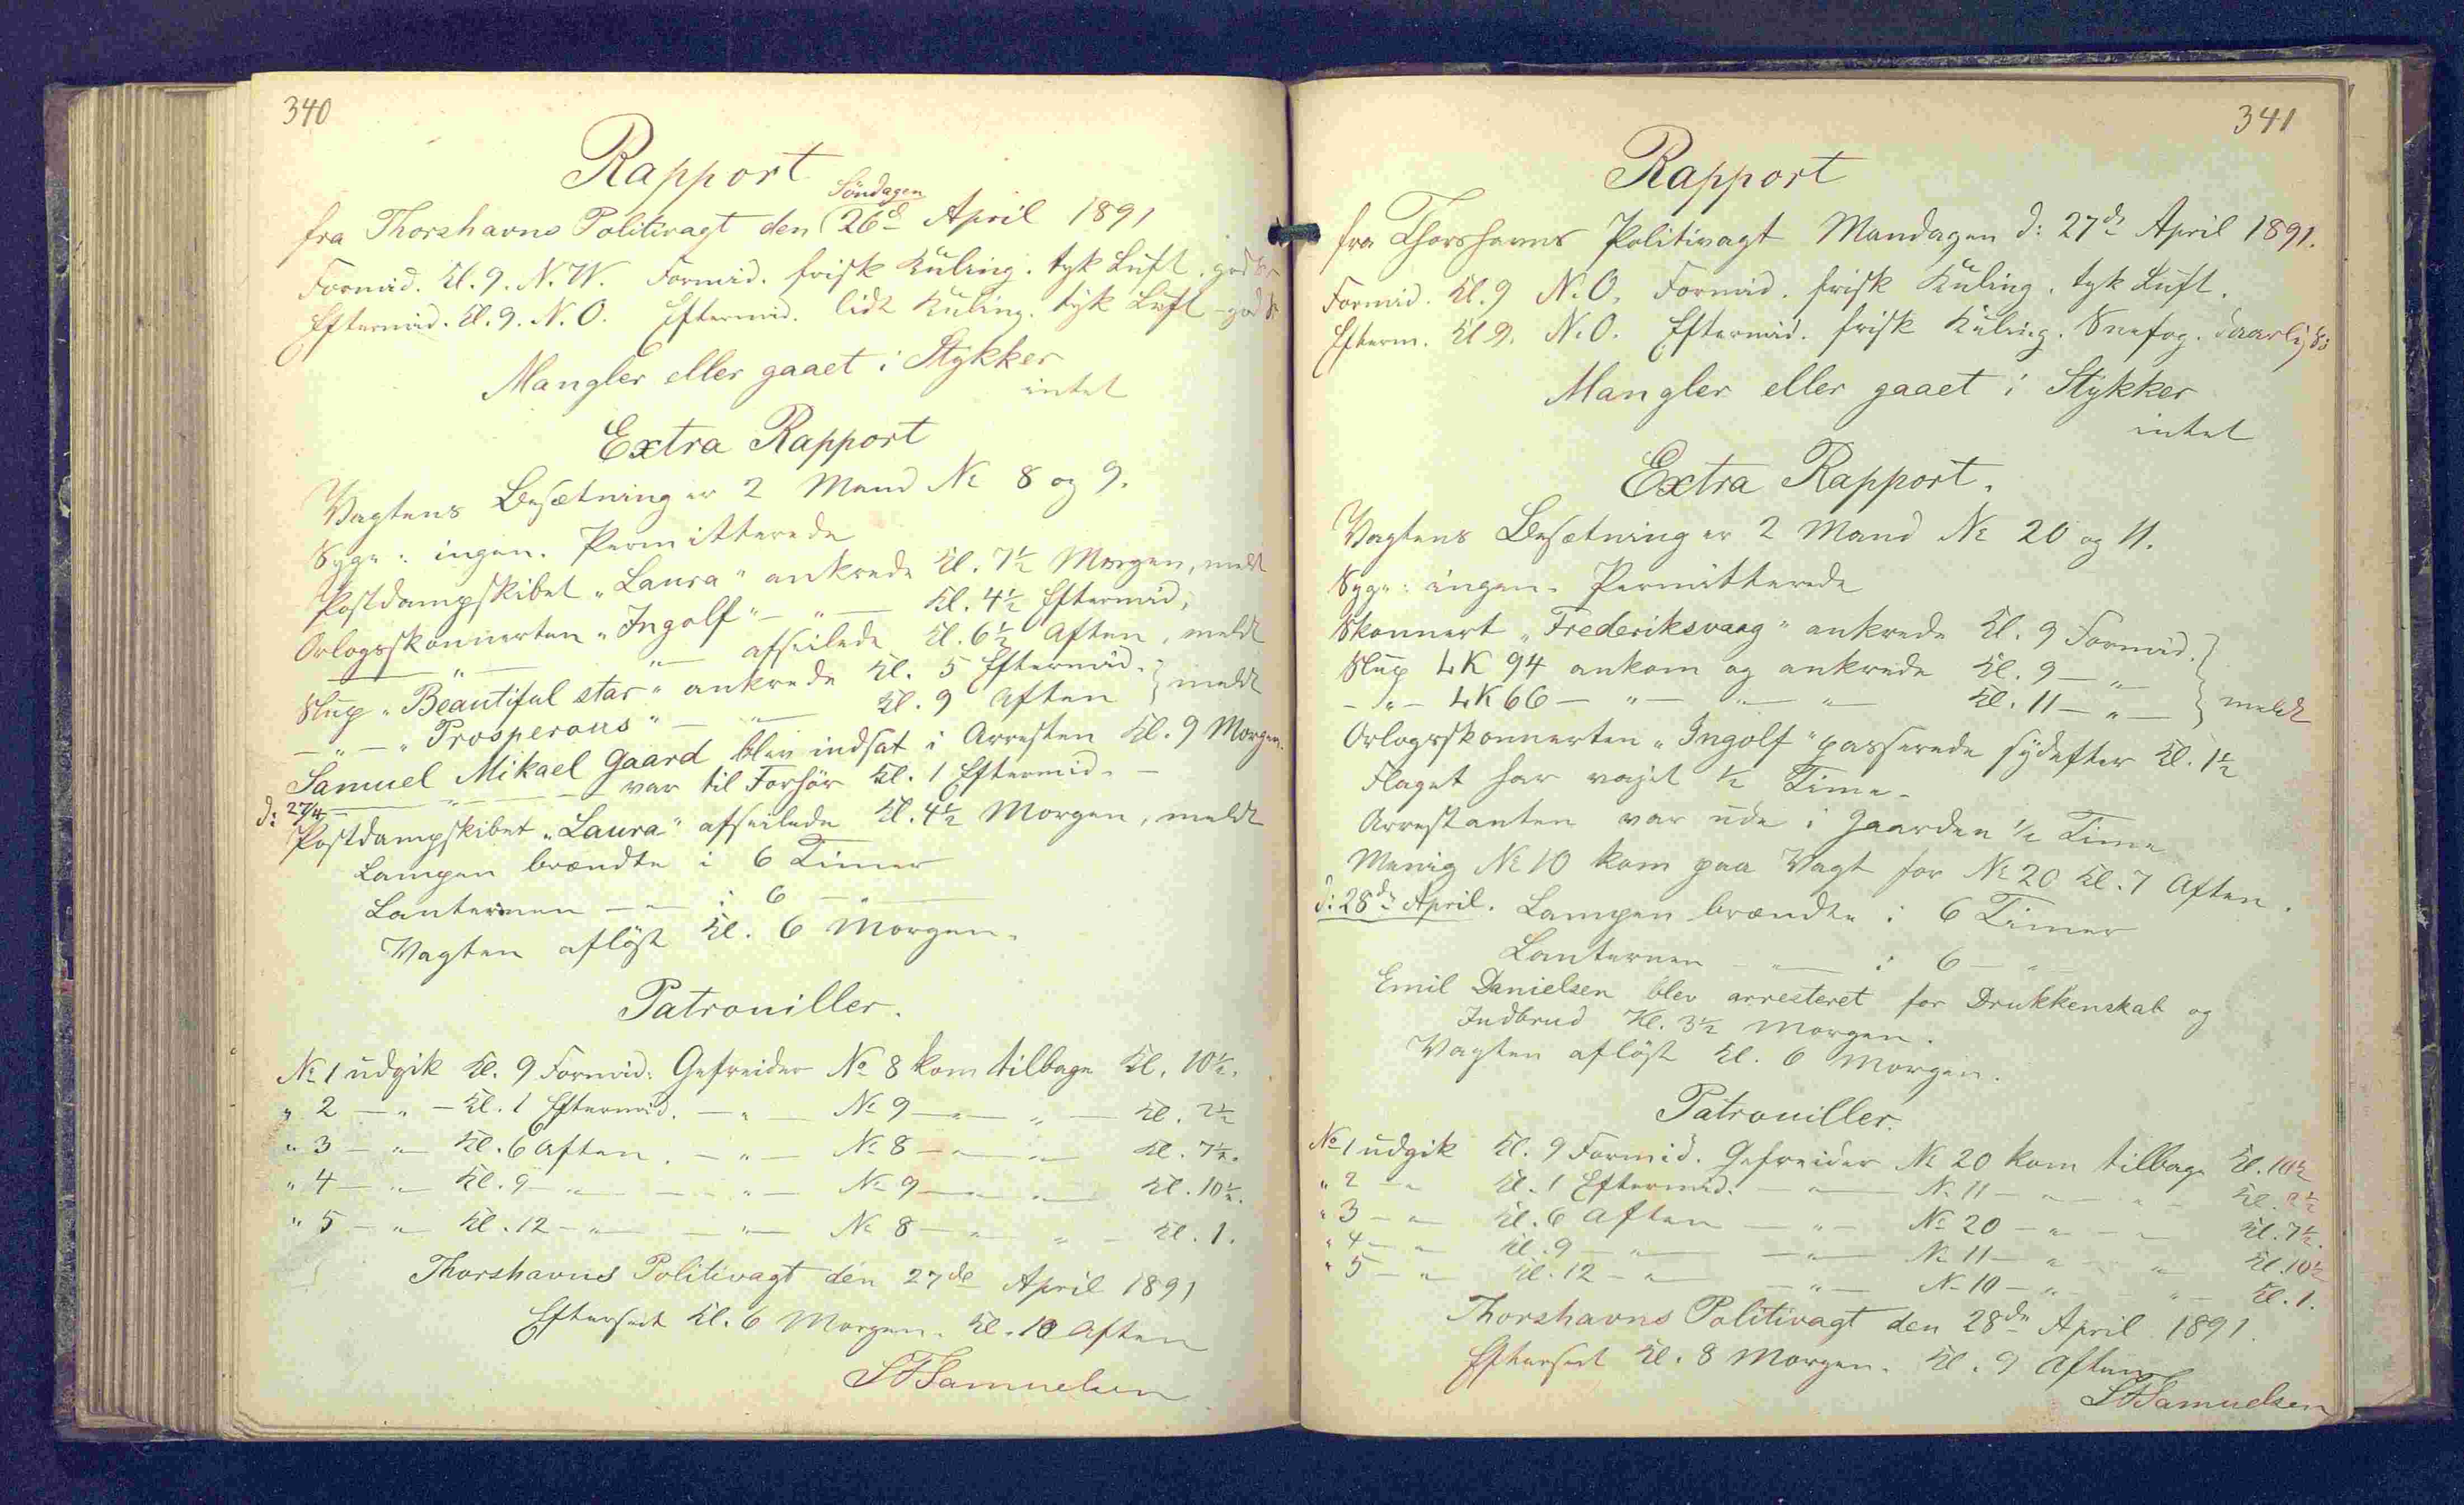 340
Rapport
Söndagen
fra Thorshavns Politivagt den 26d April 1891
Formid. Kl. 9. N.W. Formid. frisk Kuling. tyk Luft. god
Eftermid. Kl. 9. N.O. Eftermid. lidt Kuling. tyk Luft - god
Mangler eller gaaet i Stykker
intet
Extra Rapport
Vagtens Besætning er 2 Mand No 8 og 9.
Syge: ingen. Permitterede
Postdampskibet "Laura" ankrede Kl. 7½ Morgen, meldt
Orlogsskonnerten "Ingolf" — " — Kl. 4½ Eftermid,
— " — " — afseilede Kl. 6½ Aften, meldt
Slup "Beautiful star" ankrede Kl. 5 Eftermid. } meldt
— " — "Prosperous" — " — Kl. 9 Aften
Samuel Mikael Gaard blev indsat i Arresten Kl. 9 Morgen.
— " — var til Forhör Kl. 1 Eftermid. —
d: 27/4 —
Postdampskibet "Laura" afseilede Kl. 4½ Morgen, meldt
Lampen brændte i 6 Timer
Lanternen — " — i 6 — " —
Vagten aflöst Kl. 6 Morgen.
Patrouiller.
No 1 udgik Kl. 9 Formid: Gefreider No 8 kom tilbage Kl. 10½.
" 2 — " — Kl. 1 Eftermid. — " — No 9 — " — " — Kl. 2½
" 3 — " — Kl. 6 Aften. — " — No 8 — " — " — Kl. 7½.
" 4 — " — Kl. 9 — " — — " — No 9 — " — " — Kl. 10½.
" 5 — " — Kl. 12 — " — — " — No 8 — " — " — Kl. 1.
Thorshavns Politivagt den 27de April 1891
Efterseet Kl. 6 Morgen. Kl. 10 Aften
Samuelsen
341
Rapport
fra Thorshavns Politivagt Mandagen d: 27de April 1891.
Formid. Kl. 9 N.O. Formid. frisk Kuling. tyk Luft.
Efterm. Kl. 9. N.O. Eftermid. frisk Kuling. Snefog. daarlig
Mangler eller gaaet i Stykker
intet
Extra Rapport.
Vagtens Besætning er 2 Mand No 20 og 11.
Syge: ingen. Permitterede
Skonnert "Frederiksvaag" ankrede Kl. 9 Formid. }
Slup LK 94 ankom og ankrede Kl. 9 — " —
— " — LK 66 — " — " — " — Kl. 11 — " — } meldt
Orlogsskonnerten "Ingolf" passerede sydefter Kl. 1½
Flaget har vajet ½ Time.
Arrestanten var ude i Gaarden ½ Time
Menig No 10 kom paa Vagt for No 20 Kl. 7 Aften.
d: 28de April. Lampen brændte i 6 Timer
Lanternen — " — i 6 — " —
Emil Danielsen blev arresteret for Drukkenskab og
Indbrud Kl. 3½ Morgen.
Vagten aflöst Kl. 6 Morgen.
Patrouiller.
No 1 udgik Kl. 9 Formid. Gefreider No 20 kom tilbage Kl. 10½
" 2 — " Kl. 1 Eftermid. — " — No 11 — " — " — Kl. 2½
" 3 — " — Kl. 6 Aften — " — No 20 — " — " — Kl. 7½.
" 4 — " Kl. 9 — " — — " — No 11 — " — " Kl. 10½
" 5 — " Kl. 12 — " — " — No 10 — " — " — Kl. 1.
Thorshavns Politivagt den 28de April 1891.
Efterseet Kl. 8 Morgen. Kl. 9 Aften
Samuelsen